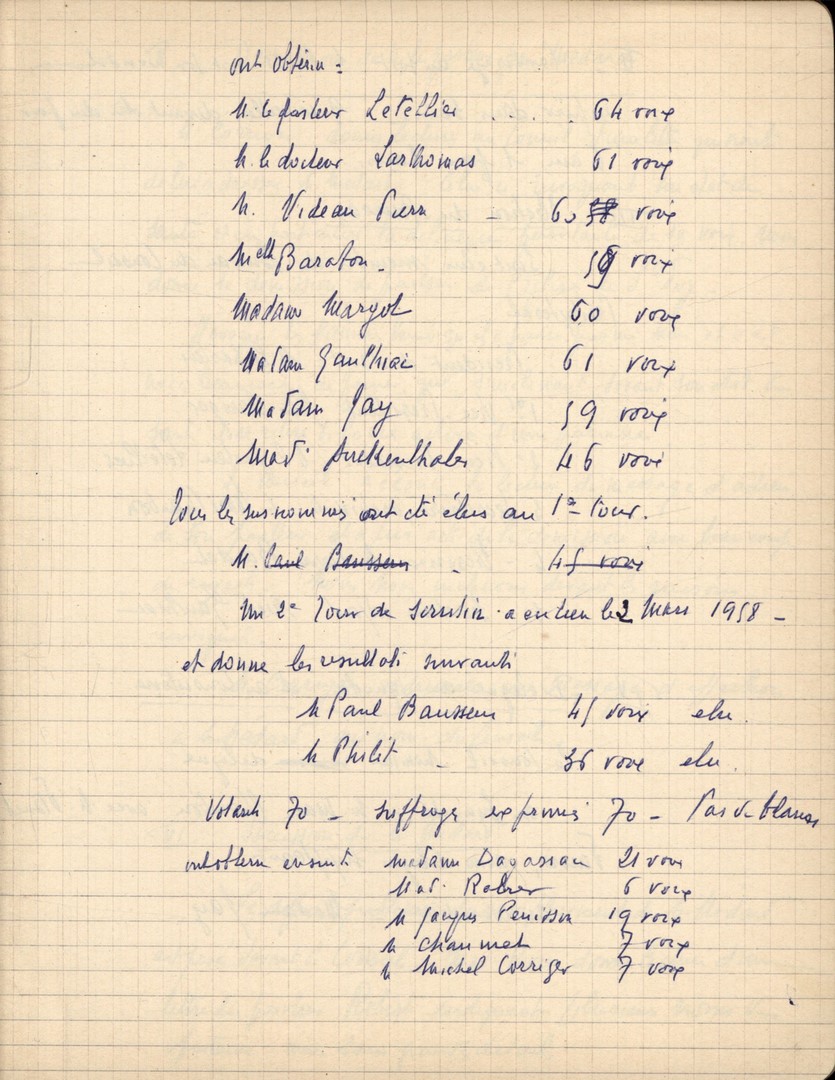 ont obtenu :
M. le pasteur Letellier . . . . 64 voix
M. le docteur Larthomas 61 voix
M. Videau Pierre - 60 voix
Melle Baraton - 59 voix
Madame Margot 60 voix
Madame Gauthier 61 voix
Madame Jay 59 voix
Mad. 46 voix
Tous les susnommés ont été élus au 1er tour.
M. Paul Baussem - 45 voix
Un 2e Tour de Scrutin a eu lieu le 2 Mars 1958 -
et donne les resultats suivants
M Paul Baussem 45 voix elu.
M Philit - 36 voix elu.
Votants 70 - suffrages exprimés 70 - Pas de blancs
ont obtenu ensuite madame Dagassan 21 voix
Mad. 6 voix
M Jacques Penisson 19 voix
M Chaumet 7 voix
M Michel Corriger 7 voix